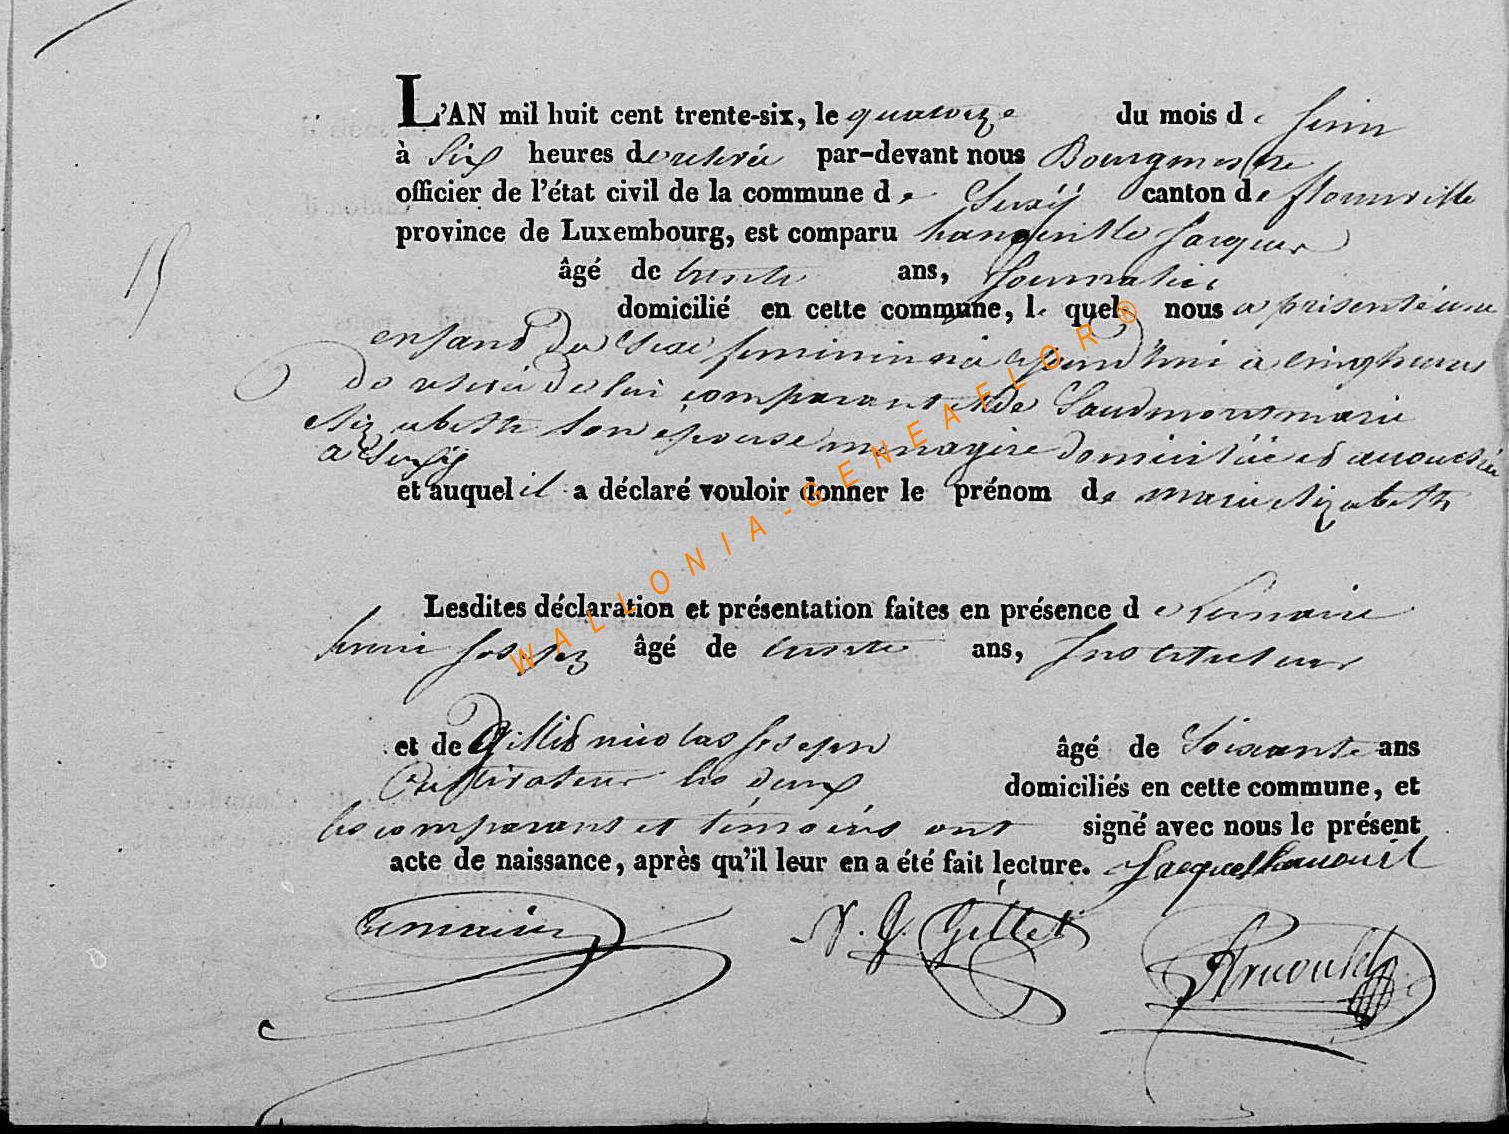 L'AN mil huit cent trente-six, le quatorze du mois de juin
à six heures de relevée par-devant nous Bourgmestre
officier de l'état civil de la commune de Suxÿ canton de florenville
province de Luxembourg, est comparu Jacques
15
âgé de trente ans, Journalier
domicilié en cette commune, le quel nous a présenté une
enfant du sexe feminin né ajourd'hui a cinq heures
de relevée de lui comparant et de marie
Elizabeth son epouse menagere domiciliée et
a Suxÿ
et auquel il a déclaré vouloir donner le prénom de marie Elizabeth
Lesdites déclaration et présentation faites en présence de Lemaire
henri Josef âgé de trente ans, Instituteur
et de Gillet nicolas Joseph âgé de Soixante ans
Cultivateur les deux domiciliés en cette commune, et
les comparant et témoins ont signé avec nous le présent
acte de naissance, après qu'il leur en a été fait lecture. Jacques
Lemaire N. J. Gillet Arnould
WALLONIA-GENEAFLOR®